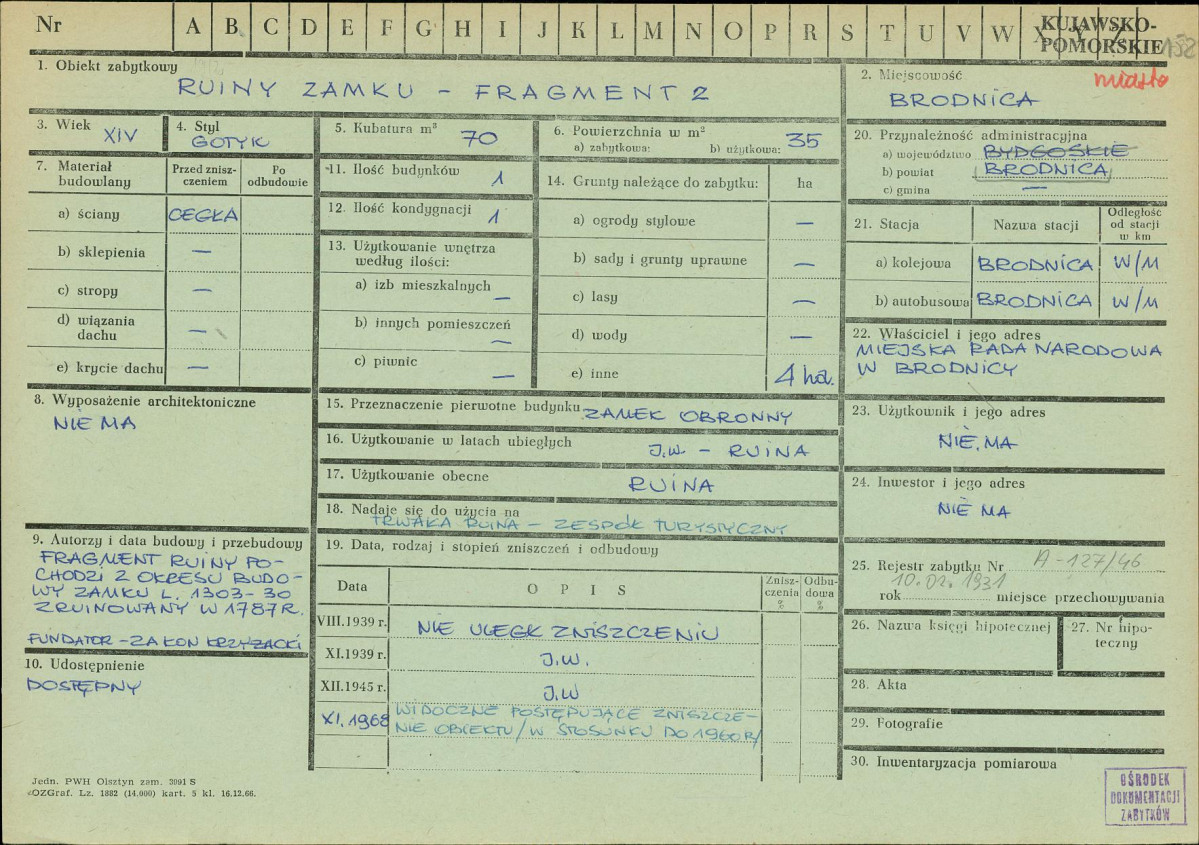 Nr A B C D E F G H I J K L M N O P R S T U V W X Y Z KUJAWSKO-
POMORSKIE 152
1. Obiekt zabytkowy
RUINY ZAMKU – FRAGMENT 2
2. Miejscowość miasto
BRODNICA
3. Wiek XIV
4. Styl
GOTYK
5. Kubatura m³ 70
6. Powierzchnia w m²
a) zabytkowa: b) użytkowa: 35
20. Przynależność administracyjna
a) województwo BYDGOSKIE
b) powiat BRODNICA
c) gmina —
7. Materiał
budowlany
Przed znisz-
czeniem
Po
odbudowie
a) ściany CEGŁA
b) sklepienia —
c) stropy —
d) wiązania
dachu —
e) krycie dachu —
11. Ilość budynków 1
12. Ilość kondygnacji 1
13. Użytkowanie wnętrza
według ilości:
a) izb mieszkalnych —
b) innych pomieszczeń —
c) piwnic —
14. Grunty należące do zabytku: ha
a) ogrody stylowe —
b) sady i grunty uprawne —
c) lasy —
d) wody —
e) inne 4 ha.
21. Stacja Nazwa stacji
Odległość
od stacji
w km
a) kolejowa BRODNICA W/M
b) autobusowa BRODNICA W/M
22. Właściciel i jego adres
MIEJSKA RADA NARODOWA
W BRODNICY
8. Wyposażenie architektoniczne
NIE MA
15. Przeznaczenie pierwotne budynku ZAMEK OBRONNY
16. Użytkowanie w latach ubiegłych J.W. – RUINA
17. Użytkowanie obecne RUINA
18. Nadaje się do użycia na
TRWAŁA RUINA – ZESPÓŁ TURYSTYCZNY
23. Użytkownik i jego adres
NIE MA
24. Inwestor i jego adres
NIE MA
9. Autorzy i data budowy i przebudowy
FRAGMENT RUINY PO-
CHODZI Z OKRESU BUDO-
WY ZAMKU L. 1303-30
ZRUINOWANY W 1787 R.
FUNDATOR – ZAKON KRZYŻACKI
10. Udostępnienie
DOSTĘPNY
19. Data, rodzaj i stopień zniszczeń i odbudowy
Data O P I S
Znisz-
czenia
%
Odbu-
dowa
%
VIII.1939 r. NIE ULEGŁ ZNISZCZENIU
XI.1939 r. J.W.
XII.1945 r. J.W
XI.1968 WIDOCZNE POSTĘPUJĄCE ZNISZCZE-
NIE OBIEKTU /W STOSUNKU DO 1960 R/
25. Rejestr zabytku Nr A-127/46
10.02.1931
rok miejsce przechowywania
26. Nazwa księgi hipotecznej
27. Nr hipo-
teczny
28. Akta
29. Fotografie
30. Inwentaryzacja pomiarowa
Jedn. PWH Olsztyn zam. 3991 S
OZGraf. Lz. 1882 (14.000) kart. 5 kl. 16.12.66.
OŚRODEK
DOKUMENTACJI
ZABYTKÓW